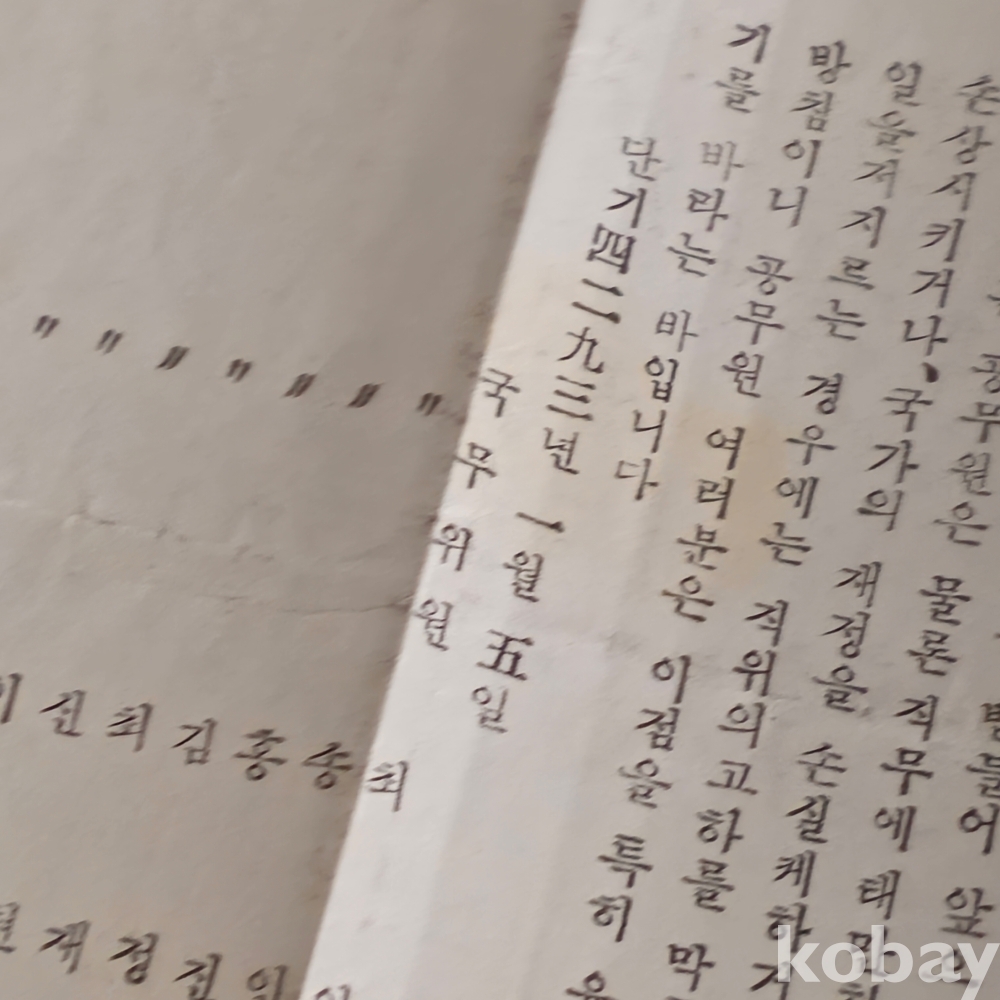 불어 앞
공무원은 물론 직무에 태만
손상시키거나、국가의 재정을 손실케하거
일을저지르는 경우에는 직위의고하를 막
방침이니 공무원 여러분은 이점을 특히 유
기를 바라는 바입니다
단기四二九三년 1월 五일
국무위원 최
〃 송인
〃 홍진
〃 김정
〃 최재
〃 신현
〃 이
〃
kobay